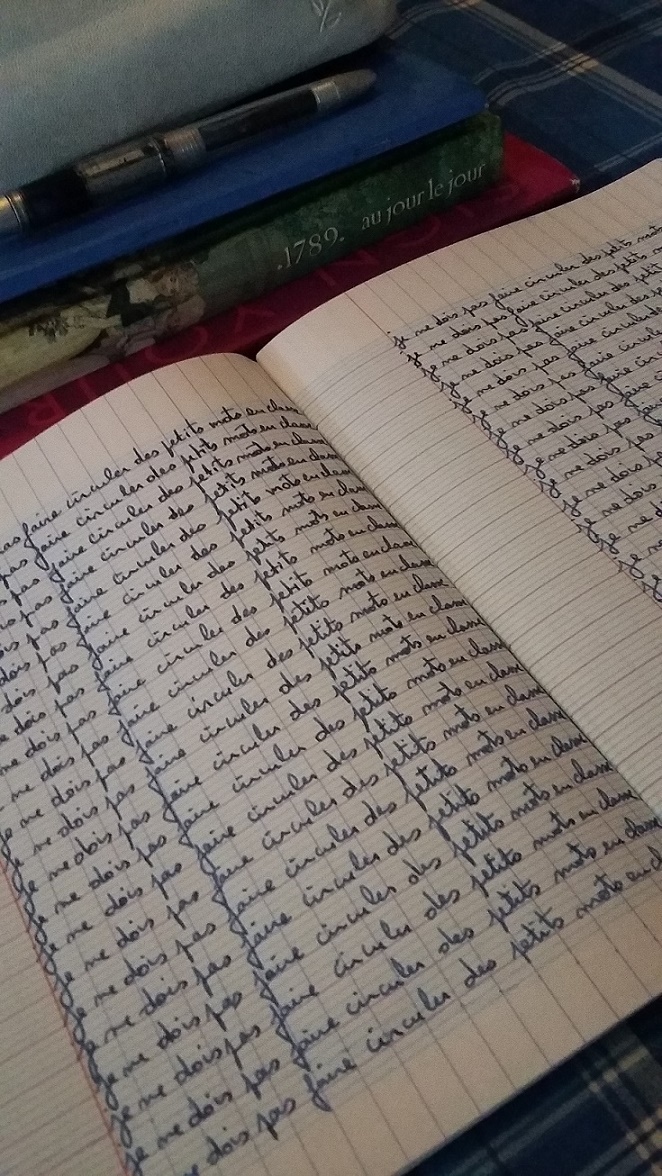 .1789. au jour le jour
pas faire circuler des petits mots en classe
pas faire circuler des petits mots en classe
pas faire circuler des petits mots en classe
pas faire circuler des petits mots en classe
dois pas faire circuler des petits mots en classe
dois pas faire circuler des petits mots en classe
dois pas faire circuler des petits mots en classe
ne dois pas faire circuler des petits mots en classe
ne dois pas faire circuler des petits mots en classe
ne dois pas faire circuler des petits mots en classe
je ne dois pas faire circuler des petits mots en classe
je ne dois pas faire circuler des petits mots en classe
je ne dois pas faire circuler des petits mots en classe
je ne dois pas faire circuler des petits mots en classe
je ne dois pas faire circuler des petits mots en classe
je ne dois pas faire circuler des petits mots en classe
je ne dois pas faire circuler des petits mots en classe
je ne dois pas faire circuler des petits mots en classe
je ne dois pas faire circuler des petits mots en classe
je ne dois pas faire circuler des petits mots en classe
ne dois pas faire circuler des petits mots en c
je ne dois pas faire circuler des petits mots
je ne dois pas faire circuler des petits m
je ne dois pas faire circuler des petit
je ne dois pas faire circuler des p
je ne dois pas faire circuler de
je ne dois pas faire circuler
je ne dois pas faire cir
je ne dois pas faire c
je ne dois pas faire
je ne dois pas f
je ne dois pas
je ne dois p
je ne dois
je ne d
je ne
je